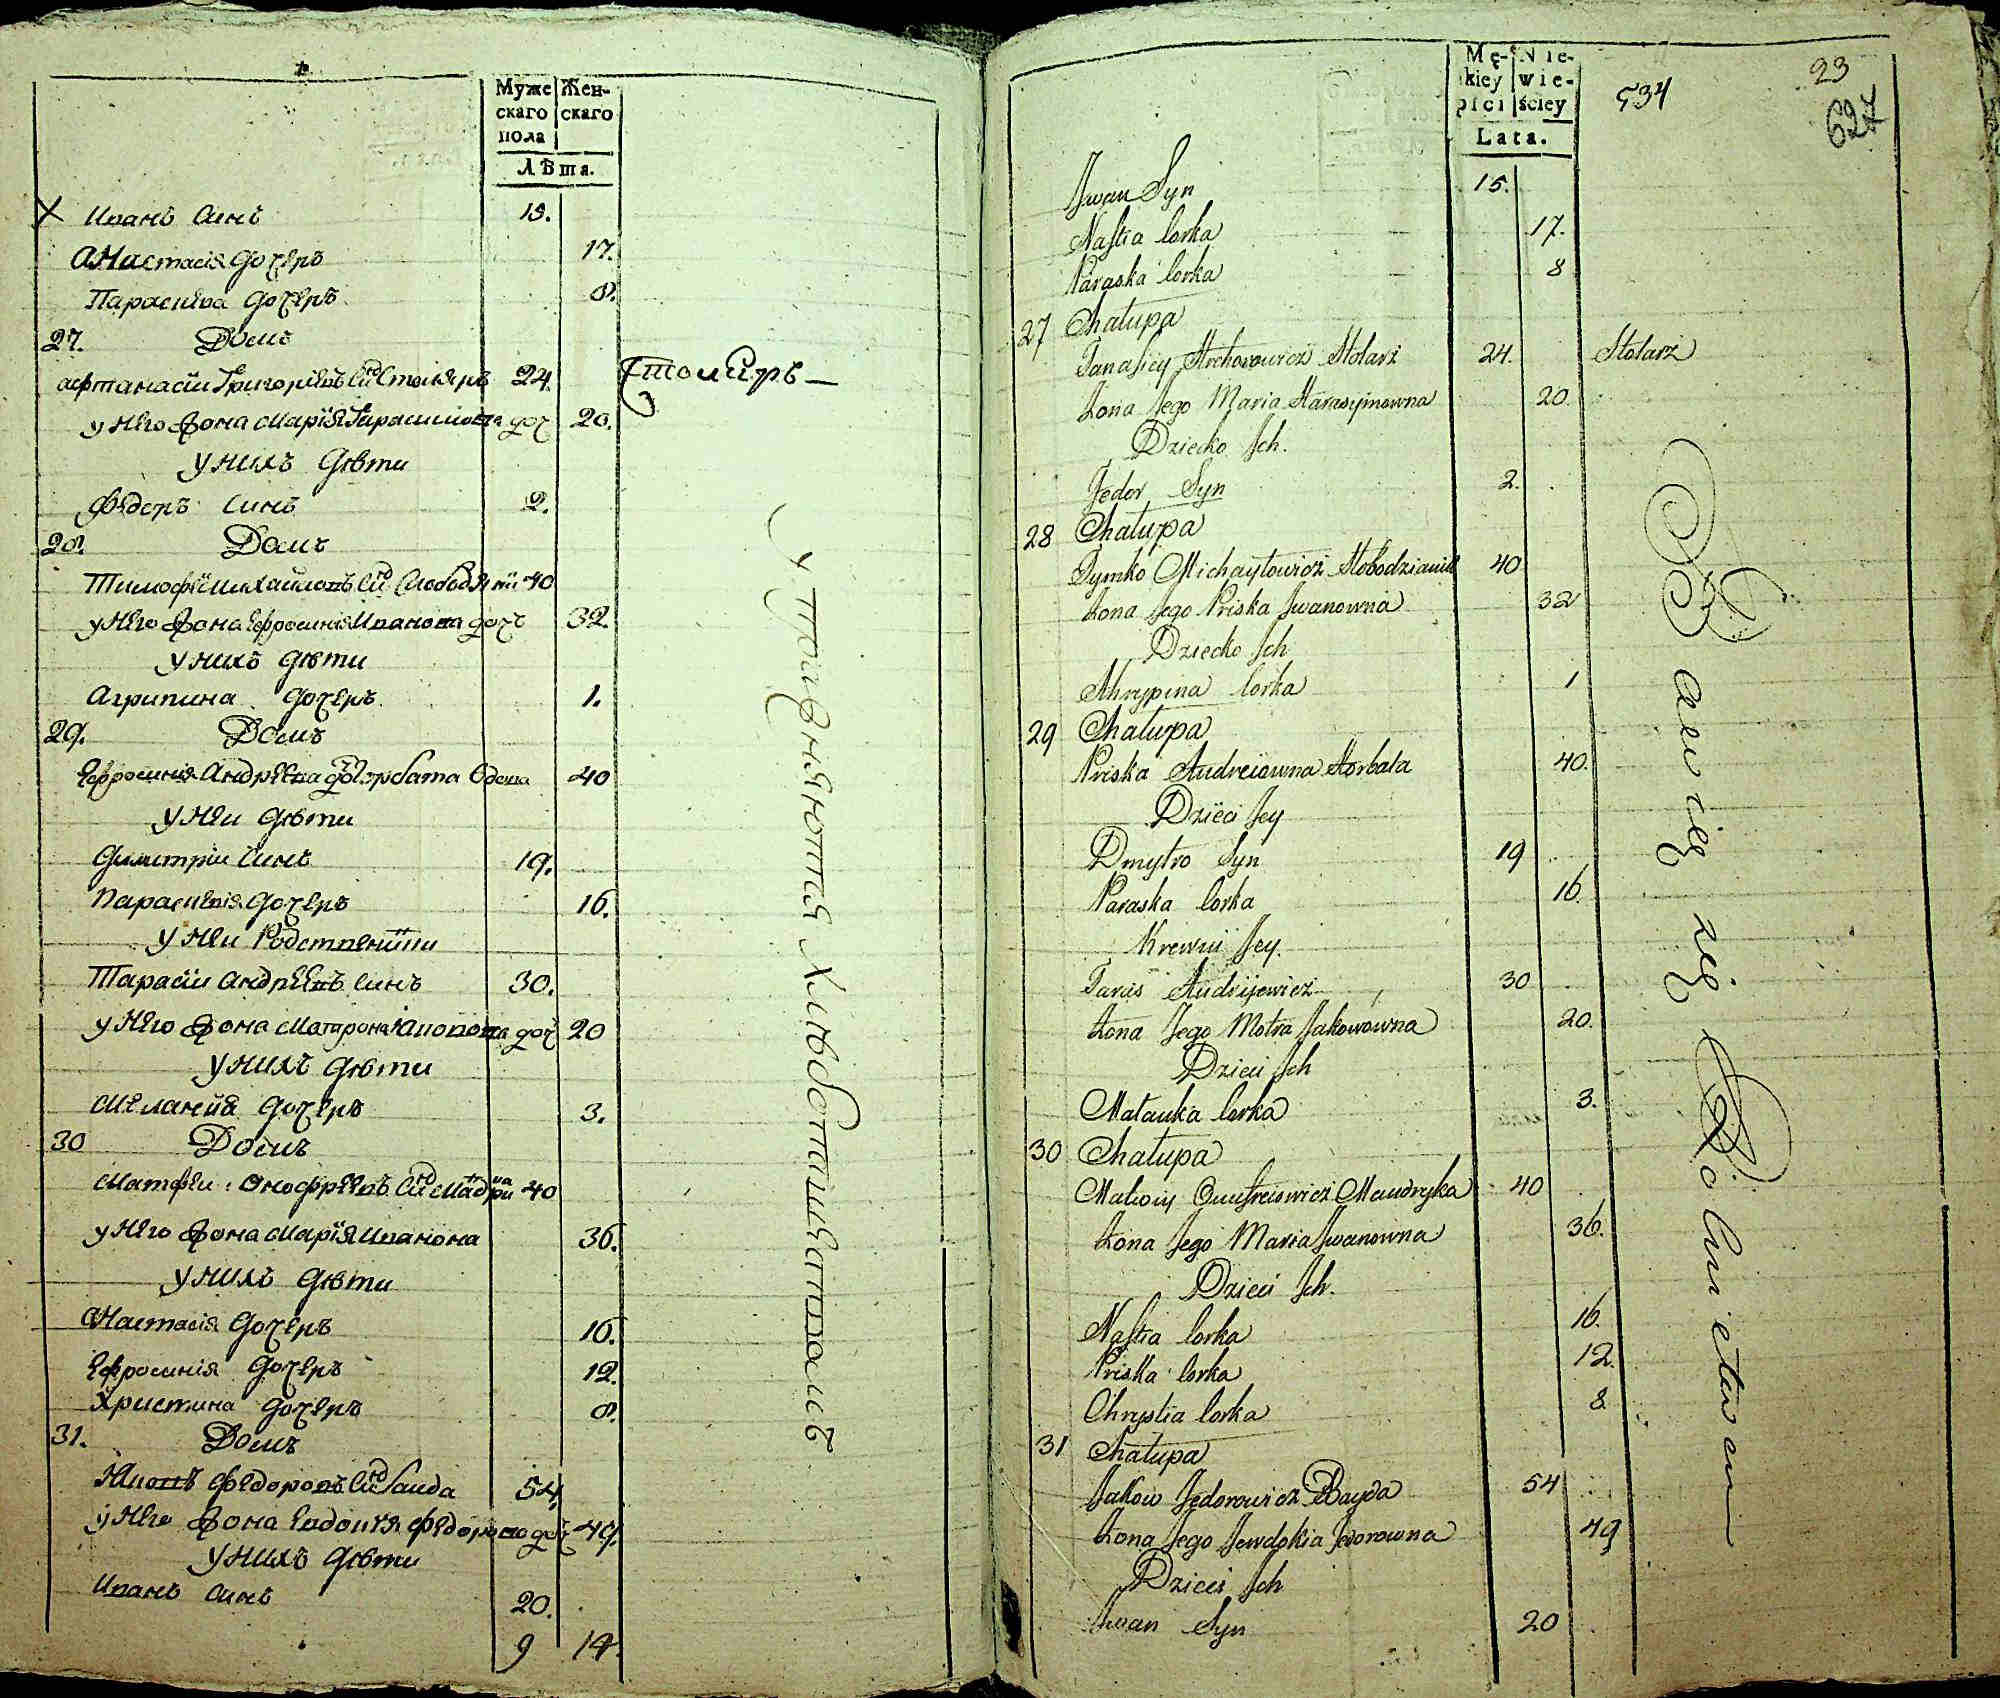 Муже Жен-
скаго скаго
пола
Лѣта.
Иванъ Синъ 15.
Анастасія Дочерь 17.
Параскева Дочерь 8.
27. Домъ
Афтанасіи Григоріевъ Снъ Столяръ 24. Столяръ
у Него Жона Марія Гарасимова доч 20.
У Нихъ Дѣти
Федоръ Синъ 2.
28. Домъ
Тимофѣи Михаиловъ Снъ Слободянii 40
у Него Жона Ефросинія Иванова доч 32.
У Нихъ Дѣти
Агрипина Дочерь 1.
29. Домъ
Ефросинія Андрѣева доч Горбата Вдова 40
У Неи Дѣти
Димитріи Синъ 19.
Параскевія Дочерь 16.
У Неи Родственніки
Тарасіи Андрѣевъ Синъ 30.
у Него Жона Матрона Яковова доч 20
У Нихъ Дѣти
Меланія Дочерь 3.
30 Домъ
Матфеи Онофріевъ Снъ Мандрика 40
у Него Жона Марія Иванова 36.
У Нихъ Дѣти
Анастасія Дочерь 16.
Ефросинія Дочерь 12.
Христина Дочерь 8.
31. Домъ
Яковъ Федоровъ Снъ Баида 54
у Него Жона Евдокія Федорова доч 49.
У Нихъ Дѣти
Иванъ Синъ 20.
9 14.
Упражняются Хлѣбопашествомъ
Mę- Nie-
kiey wie-
płci ściey
Lata.
534
23
627
Jwan Syn 15.
Nastia Corka 17.
Paraska Corka 8
27 Chałupa
Tanasiey Hrehorowicz Stolarz 24. Stolarz
Żona Jego Maria Harasymowna 20
Dziecko Jch.
Fedor Syn 2.
28 Chałupa
Tymko Michayłowicz Słobodzianik 40
Żona Jego Priska Jwanowna 32
Dziecko Jch
Ahrypina Corka 1
29 Chałupa
Priska Andreiowna Horbata 40.
Dzieci Jey
Dmytro Syn 19
Paraska Corka 16.
Krewni Jey.
Taras Andrijewicz 30
Żona Jego Motra Jakowowna 20.
Dzieci Jch
Małanka Corka 3.
30 Chałupa
Matwiy Onufreiowicz Mandryka 40
Żona Jego Maria Jwanowna 36.
Dzieci Jch.
Nastia Corka 16.
Priska Corka 12.
Chrystia Corka 8
31 Chałupa
Jakow Fedorowicz Bayda 54
Żona Jego Jewdokia Fedorowna 49
Dzieci Jch
Jwan Syn 20
Bawią się Rolnictwem